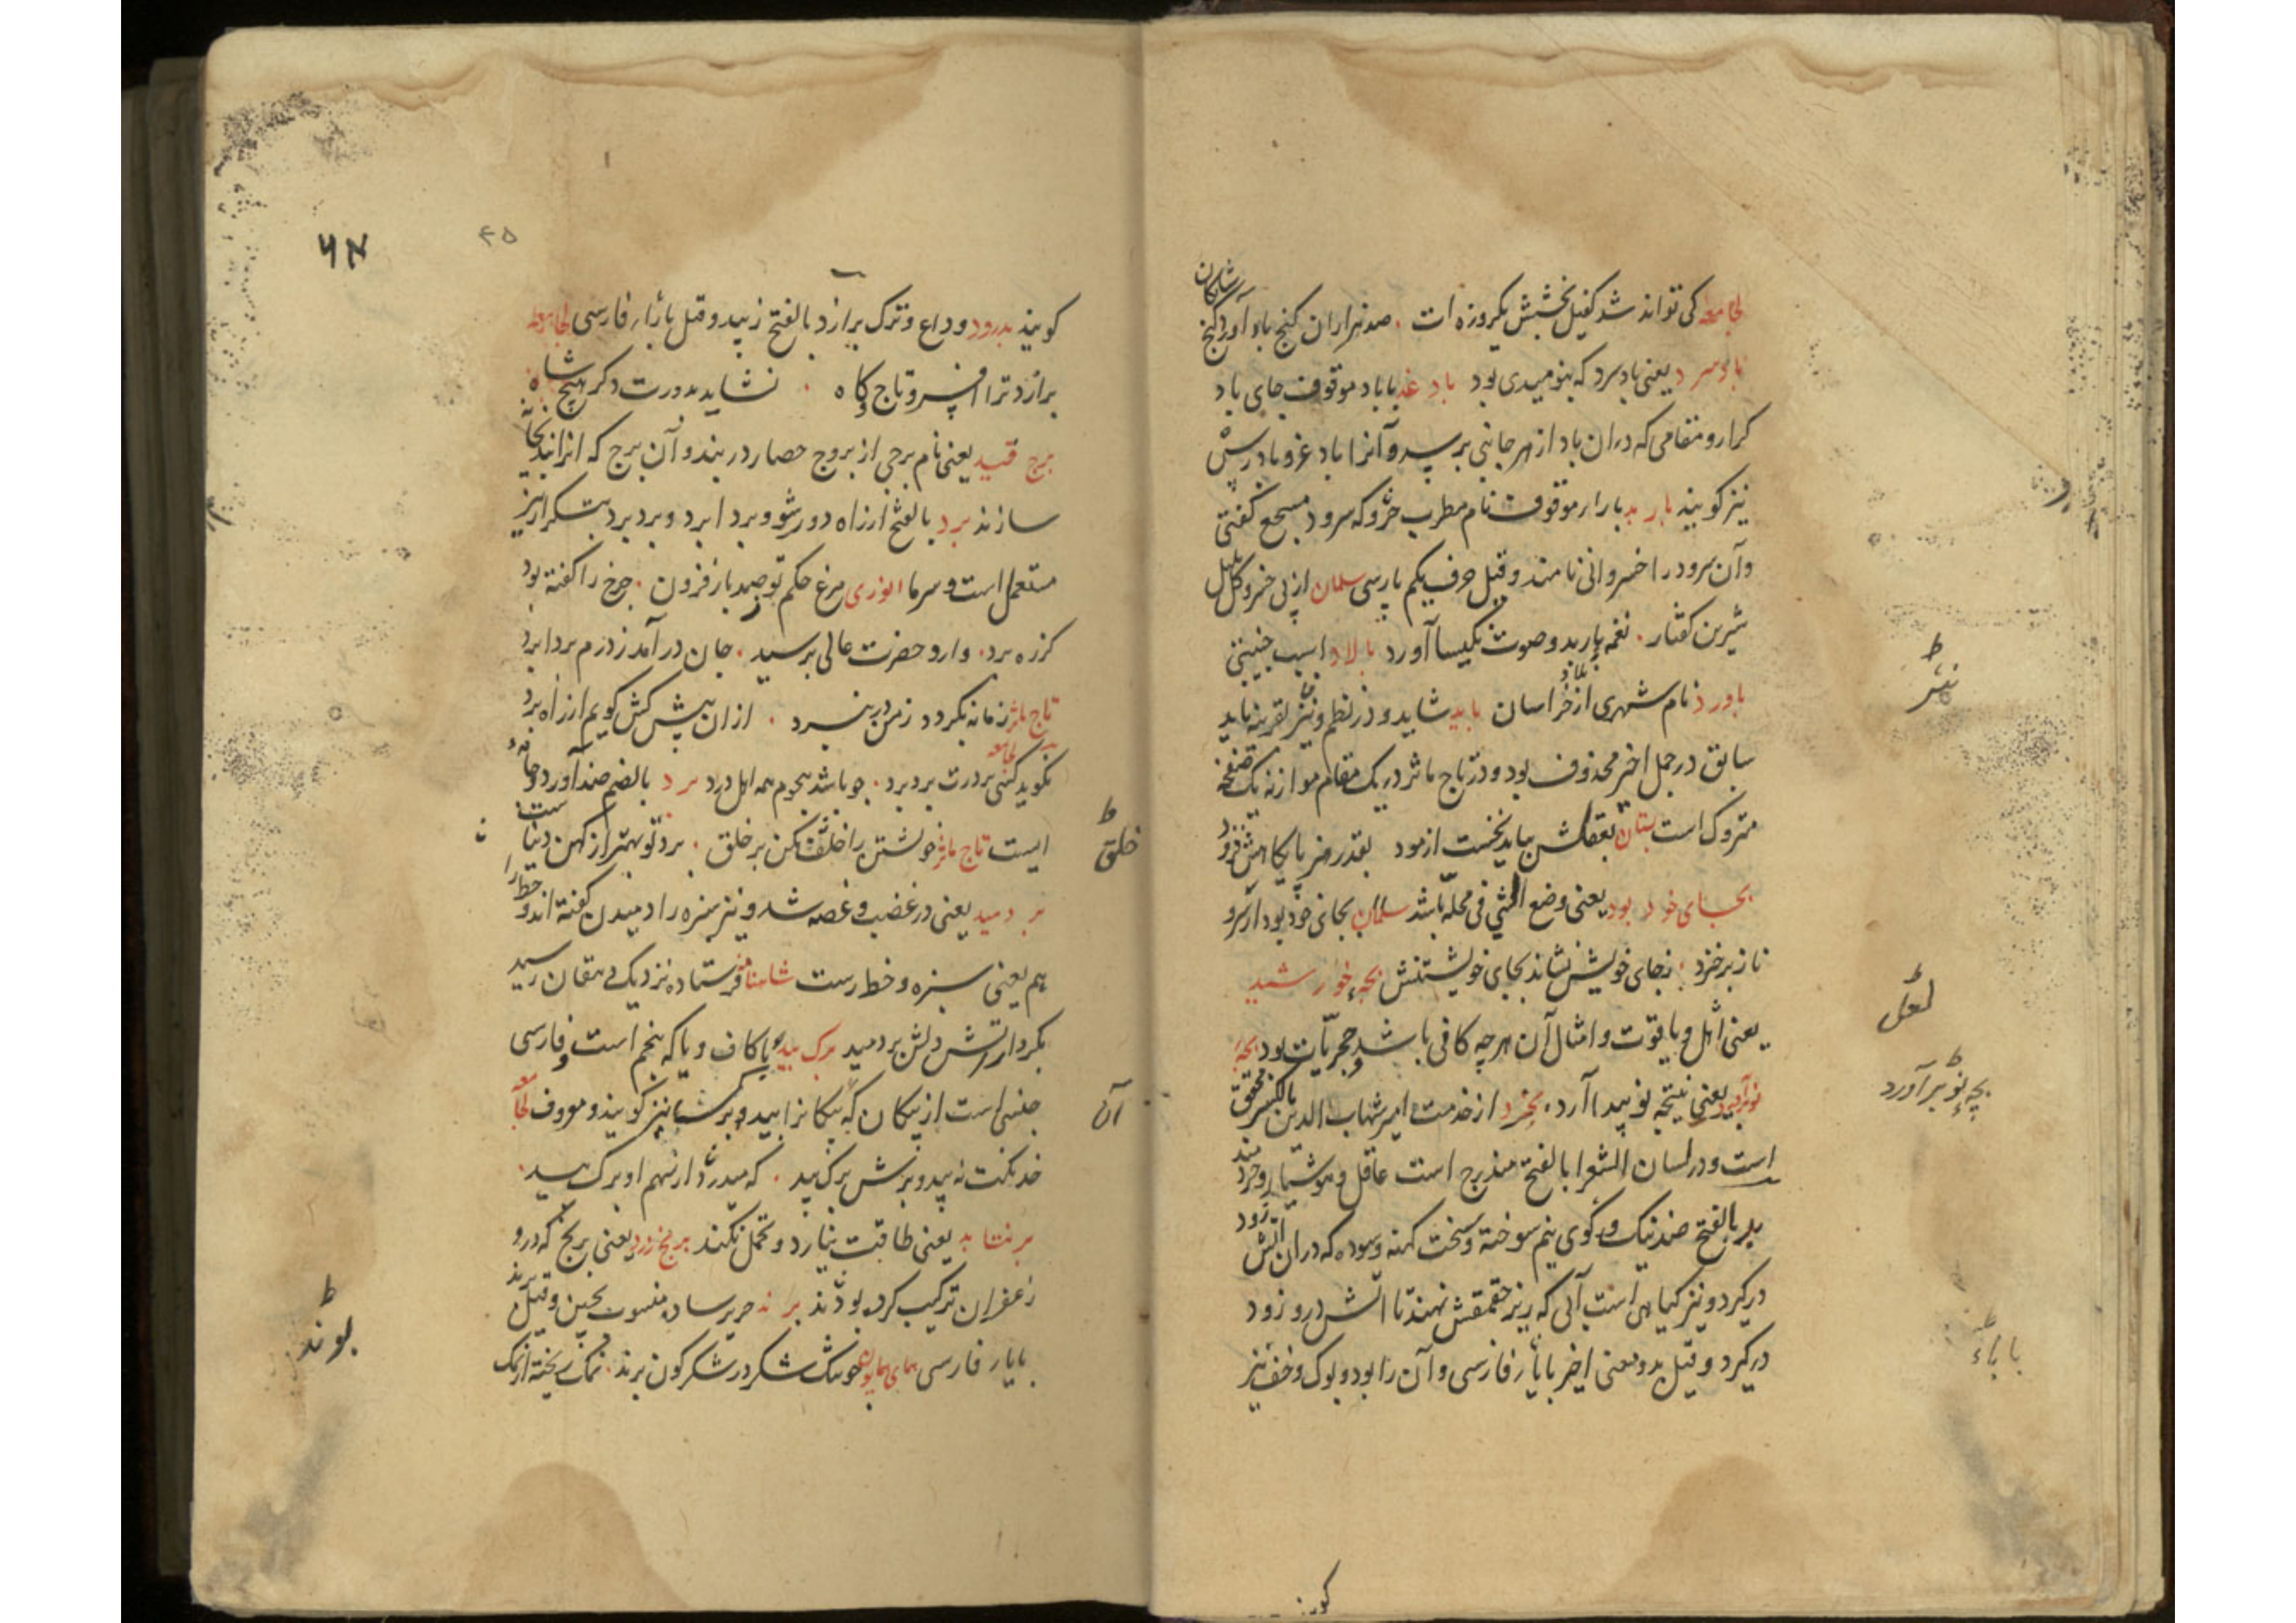 لجامعه کی تواند شد کفیل بخشش یکروزه ات . صد هزاران کنج باد آورد و کنج شایکان
باد سرد یعنی باد سرد که بنومیدی بود باد غد با باد موقوف جای باد
کرار و مقامی که دران باد از هر جانبی برسد و آنرا باد غر و بادرس
نیز کویند بار بد با راء موقوف نام مطرب خسرو که سرود مسجع کفتی
وآن سرود را خسروانی نامند و قیل حرف یکم پارسی سلمان از پی خسرو کل بلبل
شیرین کفتار . نغمه باربد و صوت نکیسا آورد بالاد اسب جنیبتی
باورد نام شهری از خراسان باید شاید و در نظم و نثر بقرینه باید
سابق در جمل اخیر محذوف بود و در تاج ماثر در یک مقام موازنه یک صفحه
متروک است بستان بعقلش بباید نخست ازمود بقدر هنر پایکاهش فزود
بجای خود بود یعنی وضع الشی فی محله باشد سلمان بجای خود بود ار سرو
ناز برخیزد . زجای خویش نشاند بجای خویشتنش بچه خورشید
یعنی لعل و یاقوت و امثال آن هرچه کافی باشد و حجریات بود بچه
نو آورد یعنی نتیجه نو پیدا آرد بخرد از خدمت امیر شهاب الدین بالکسر محقق
است و در لسان الشعرا بالفتح مندرج است عاقل و هوشیار و خردمند
بد بالفتح ضد نیک و رکوی نیم سوخته و سخت کهنه و سوده که دران اتش زود
درکیرد و نیز کیاهی است آبی که زیر حقمقش نهند تا اتش درو زود
درکیرد و قیل بد و معنی اخیر با باء فارسی وآن را بود و بوک و خف نیز
نثر
لعل
بچه نو برآورد
با باء
کویند
۴۵
کویند بدرود وداع و ترک برازد بالفتح زیبد و قیل با زاء فارسی لجامعه
برازد ترا افسر و تاج و کاه . نشاید بدورت دکر هیچ شاه
برج قید یعنی نام برجی از بروج حصار دربند و آن برج که انرا بندیخانه
سازند برد بالفتح از راه دور شو و برد ابرد و برد برد بتکرار نیز
مستعمل است و سرما انوری مرغ حکم تو صد باز فزون . چرخ را کفته بود
کز ره برد . وارد حضرت عالی برسید . جان در آمد ز درم بردا برد
تاج ماثر زمانه نکردد زمن در نبرد . ازان پیش کش کویم از راه برد
بکوید کسی بر درت برد برد . چو باشد هجوم همه اهل درد برد بالضم ضد آورد و جامه
ایست تاج ماثر خویشتن را خلق مکن بر خلق . برد نو بهتر از کهن دیبا ست
بر دمید یعنی در غضب و غصه شد و نیز سبزه را دمیدن کفته اند و خط را
هم یعنی سبزه و خط رست شاهنامه فرستاده نزدیک دهقان رسید
بکردار اتش دلش بردمید برک بید با کاف و یا که پنجم است و فارسی
جنسی است از پیکان که پیکانرا بید و برک بید نیز کویند و معروف لجامعه
خدنکت نه بید و برش برک بید . که میدرد از سهم او برک بید .
برنتابد یعنی طاقت نیارد و تحمل نکند برنج زرد یعنی برنج که درو
زعفران ترکیب کرده بودند برند حریر ساده منسوب بچین و قیل پرند
با پاء فارسی همای همایون خوشک شکر در شکر کون برند . نمک ریخته از نمک
خلق
آن
بوند